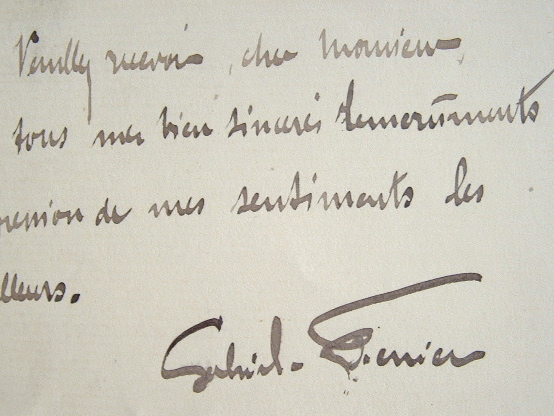 Veuillez recevoir, cher Monsieur,
tous mes bien sincères remerciements
pression de mes sentiments les
lleurs.
Gabriel Ferrier